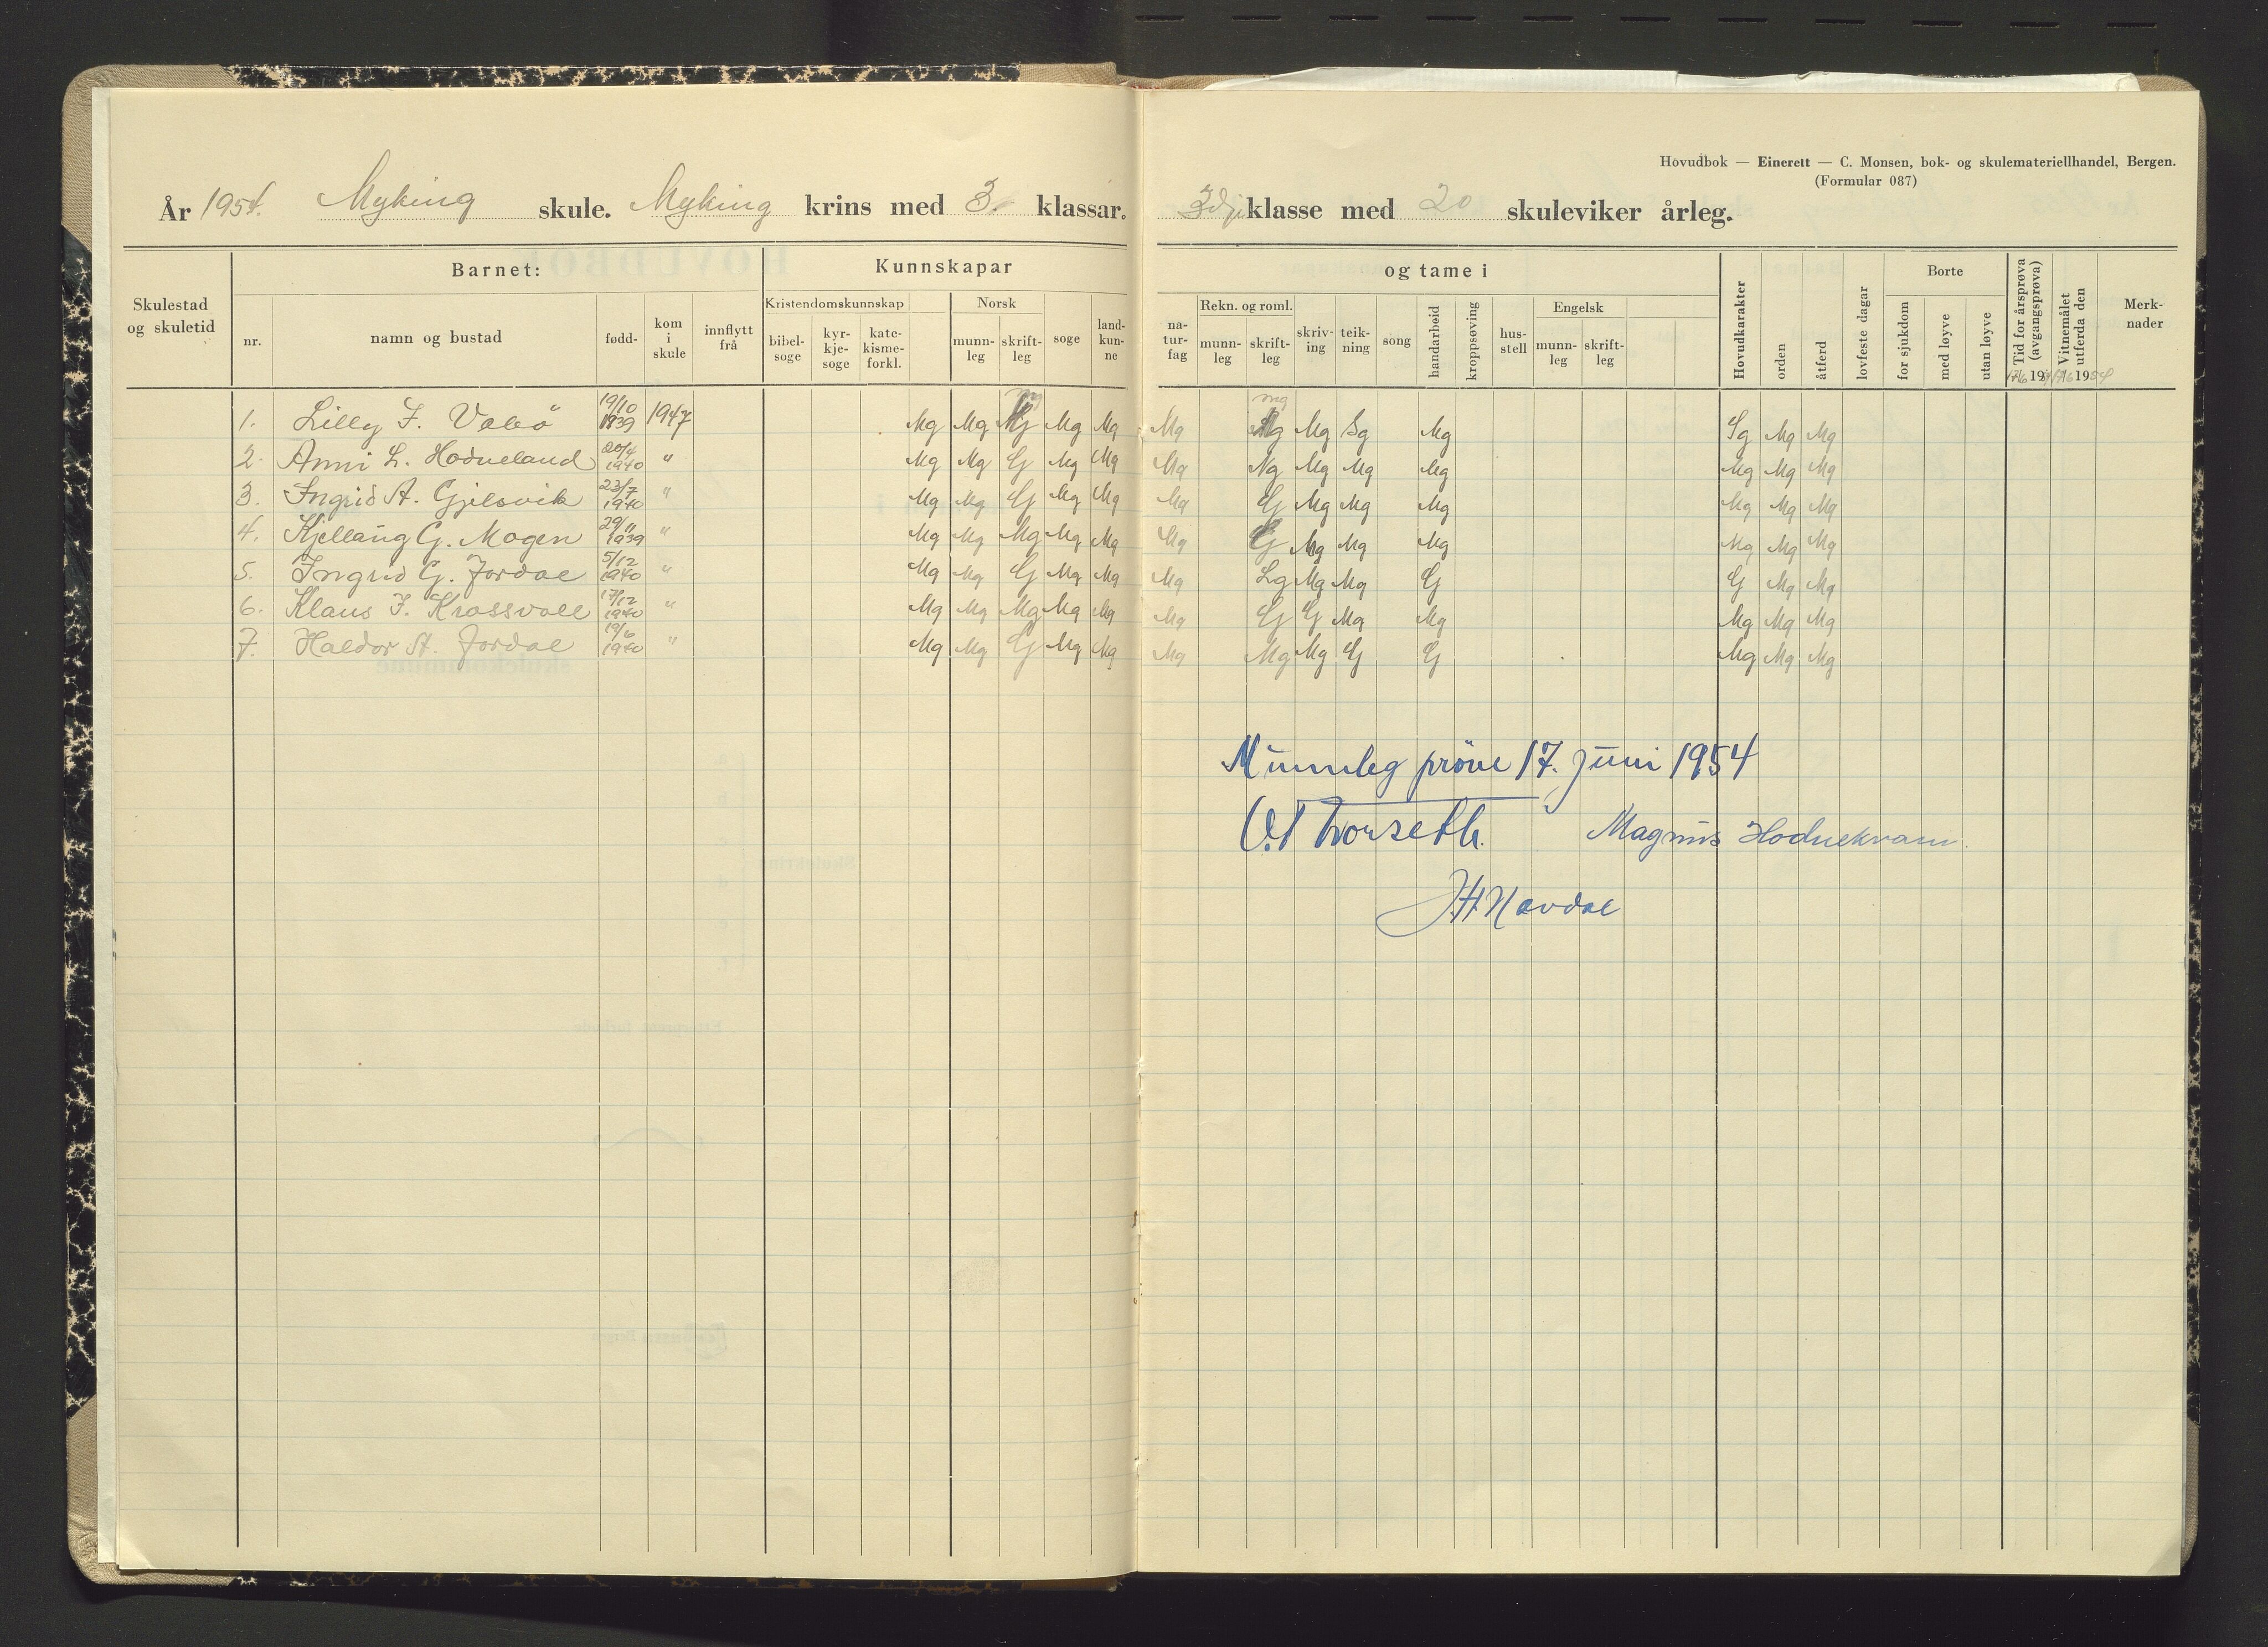 Hovudbok — Einerett — C. Monsen, bok- og skulemateriellhandel, Bergen.
(Formular 087)
År 1954. Myking skule. Myking krins med 3. klassar. 3dje klasse med 20 skuleviker årleg.
Skulestad og skuletid
Barnet:
nr. namn og bustad fødd- kom i skule innflytt frå
Kunnskapar og tame i
Kristendomskunnskap
bibel-soge kyr-kje-soge kate-kisme-forkl.
Norsk
munn-leg skrift-leg soge land-kun-ne
na-tur-fag
Rekn. og roml.
munn-leg skrift-leg skriv-ing teik-ning song handarbeid kroppsøving hus-stell
Engelsk
munn-leg skrift-leg
Hovudkarakter orden åtferd lovfeste dagar
Borte
for sjukdom med løyve utan løyve
Tid for årsprøva (avgangsprøva) 17/6 19
Vitnemålet utferda den 17/6 1954
Merk-nader
1. Lilly F. Valbø 19/10 1939 1947 Mg Mg Mg Mg Mg Mg Mg Sg Mg Sg Mg Mg
2. Anni L. Hodneland 20/4 1940 " Mg Mg G Mg Mg Mg Ng Mg Mg Mg Mg Mg Mg
3. Ingrid A. Gjelsvik 23/7 1940 " Mg Mg G Mg Mg Mg G Mg Mg Mg Mg Mg Mg
4. Kjellaug G. Mogen 29/11 1939 " Mg Mg Mg Mg Mg Mg G Mg Mg Mg Mg Mg Mg
5. Ingrid G. Jordal 5/12 1940 " Mg Mg G Mg Mg Mg Lg Mg Mg G G Mg Mg
6. Klaus J. Krossvoll 17/12 1940 " Mg Mg Mg Mg Mg Mg G G Mg Mg Mg Mg Mg
7. Haldor A. Jordal 19/6 1940 " Mg Mg G Mg Mg Mg Mg Mg G G Mg Mg Mg
Munnleg pröve 17. juni 1954
O.T Worseth. Magnus Hodnekvam
J.H. Nævdal